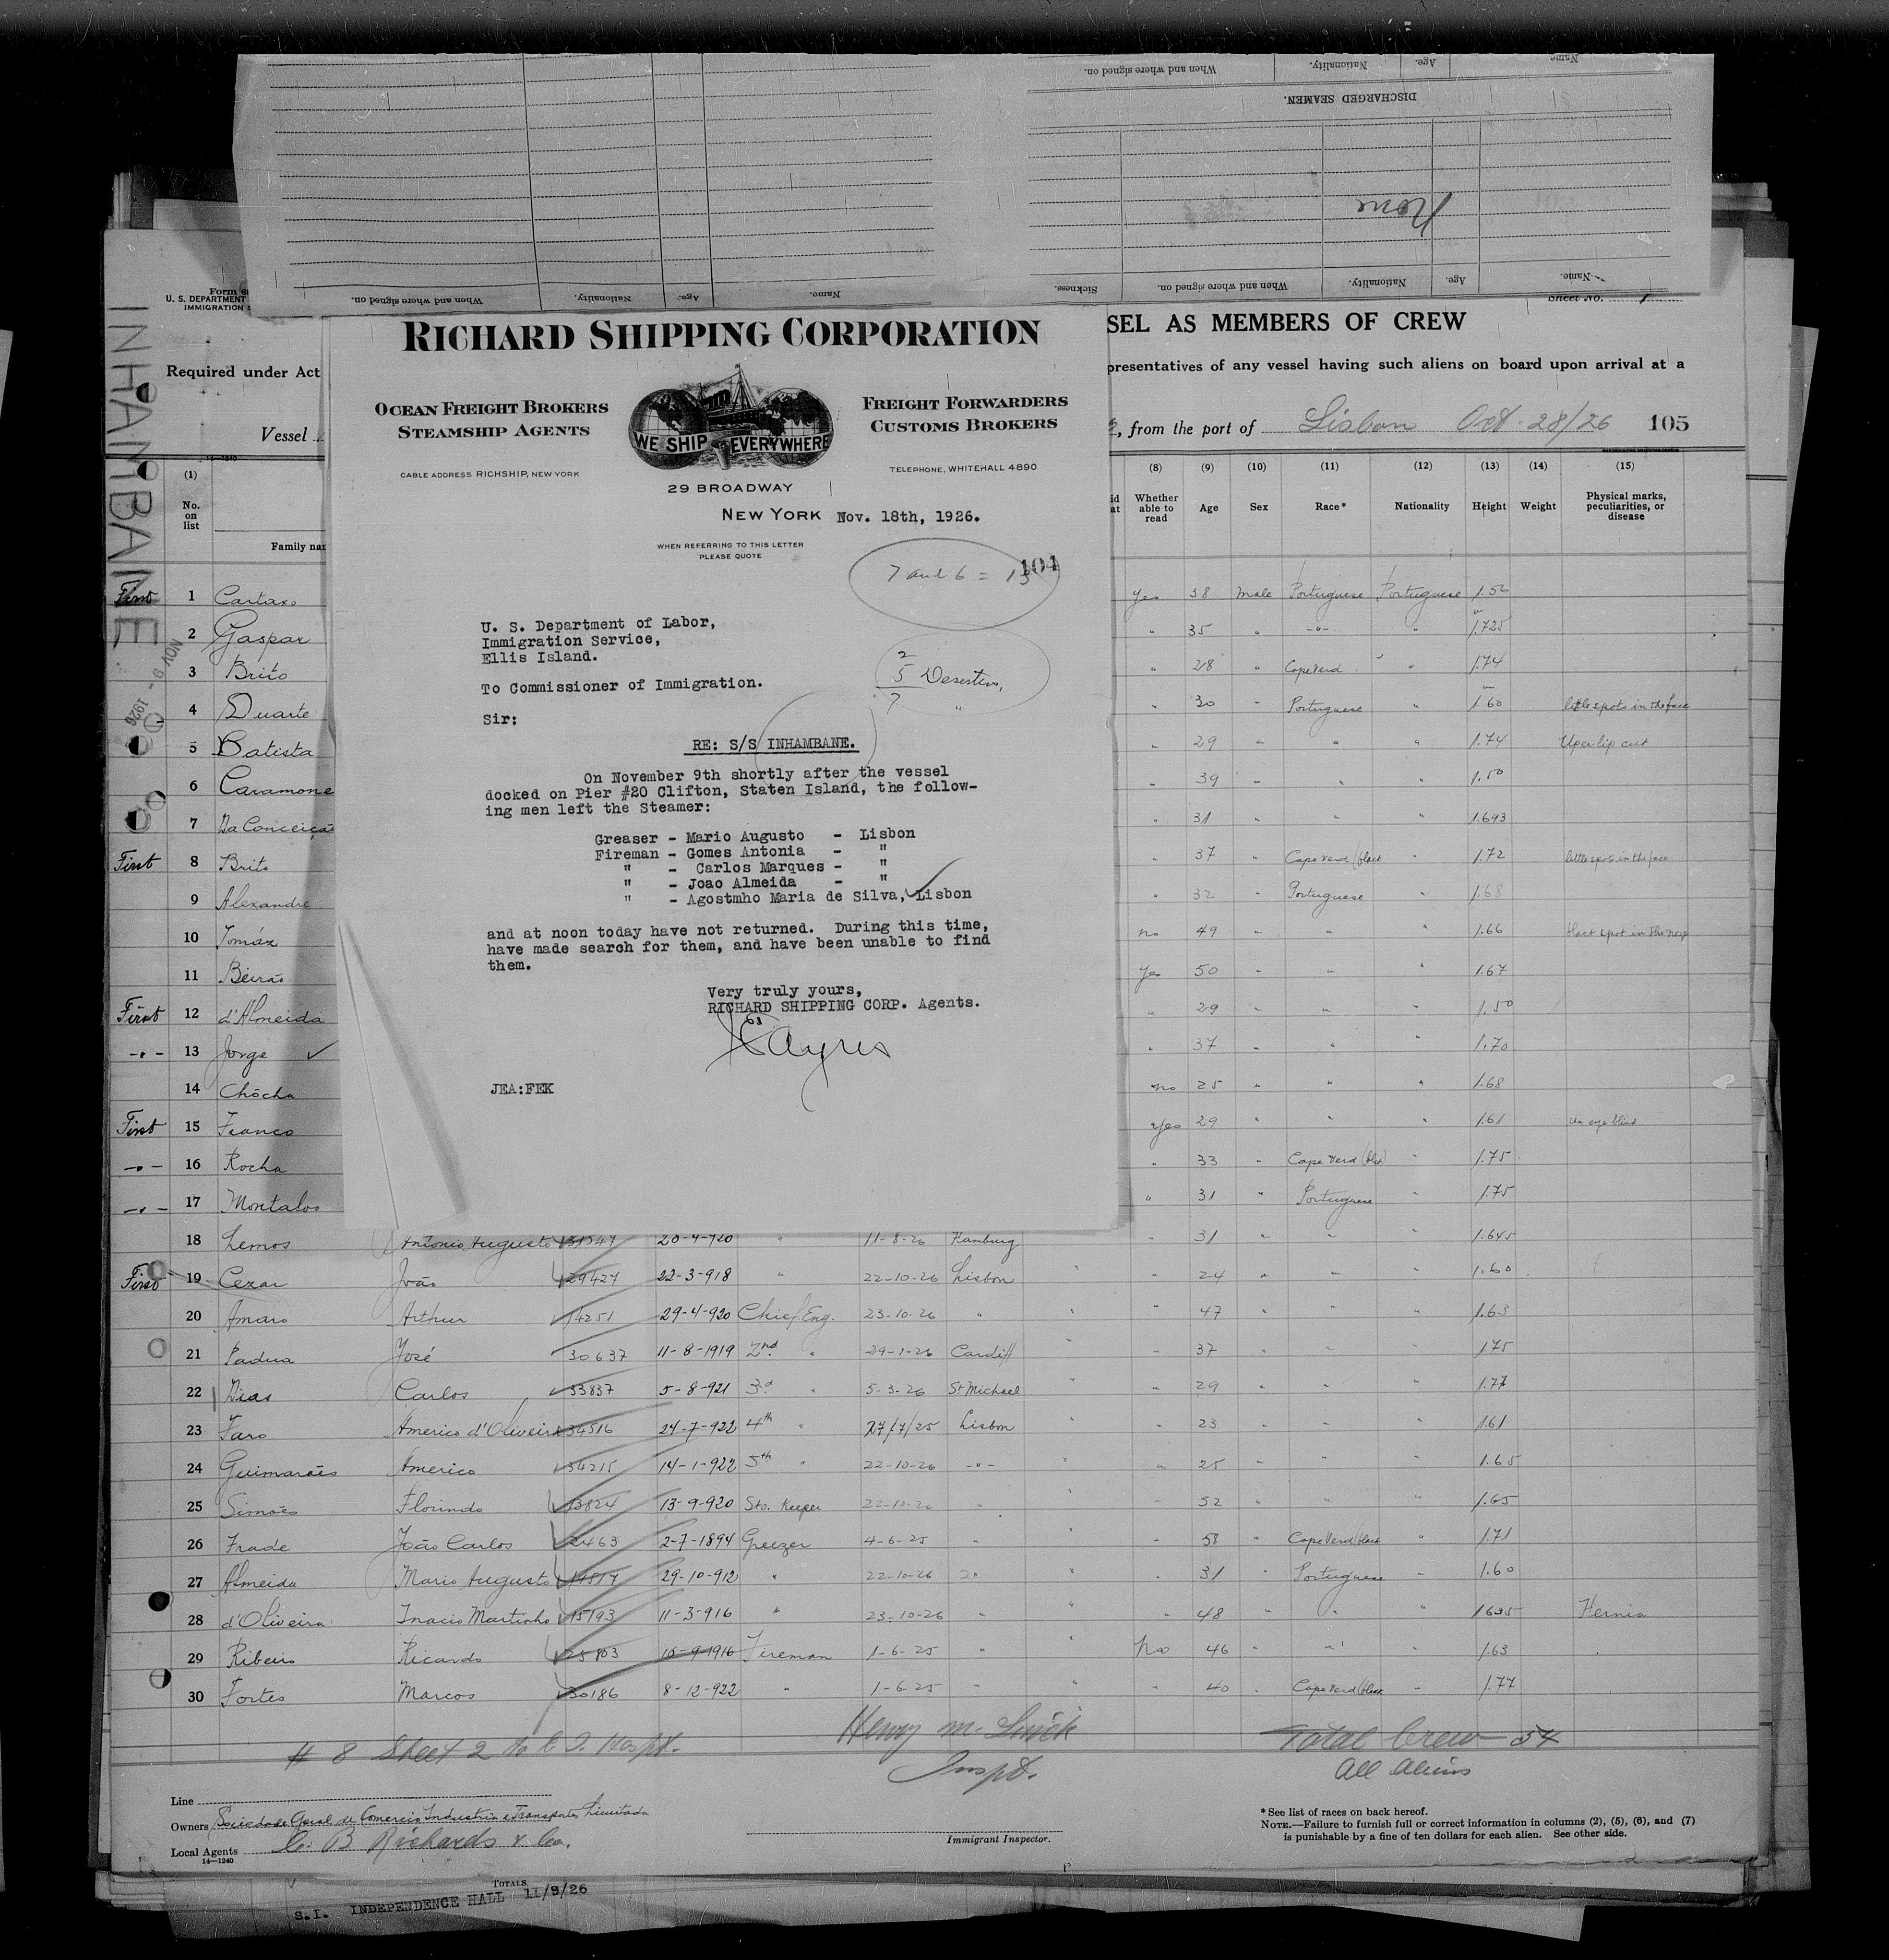 When and where signed on.
Nationality.
Age.
Name
DISCHARGED SEAMEN.
None
When and where signed on.
Nationality.
Age.
Name.
Sickness.
When and where signed on.
Nationality.
Age.
Name.
Form 6
U. S. DEPARTMENT
IMMIGRATION S
Sheet No. 1
INHAMBANE
NOV 9 - 1926
RICHARD SHIPPING CORPORATION
OCEAN FREIGHT BROKERS
STEAMSHIP AGENTS
WE SHIP EVERYWHERE
FREIGHT FORWARDERS
CUSTOMS BROKERS
CABLE ADDRESS RICHSHIP, NEW YORK
TELEPHONE, WHITEHALL 4890
29 BROADWAY
NEW YORK Nov. 18th, 1926.
WHEN REFERRING TO THIS LETTER
PLEASE QUOTE
104
7 and 6 = 13
U. S. Department of Labor,
Immigration Service,
Ellis Island.
2
5 Deserters,
7 "
To Commissioner of Immigration.
Sir:
RE: S/S INHAMBANE.
On November 9th shortly after the vessel
docked on Pier #20 Clifton, Staten Island, the follow-
ing men left the Steamer:
Greaser - Mario Augusto - Lisbon
Fireman - Gomes Antonia - "
" - Carlos Marques - "
" - Joao Almeida - "
" - Agostmho Maria de Silva, Lisbon
and at noon today have not returned. During this time,
have made search for them, and have been unable to find
them.
Very truly yours,
RICHARD SHIPPING CORP. Agents.
JEA:FEK
SEL AS MEMBERS OF CREW
Required under Act
presentatives of any vessel having such aliens on board upon arrival at a
Vessel
, from the port of Lisbon Oct. 28/26 105
(1) (8) (9) (10) (11) (12) (13) (14) (15)
No. on list
Family nam
id at
Whether able to read
Age
Sex
Race*
Nationality
Height
Weight
Physical marks, peculiarities, or disease
First 1 Cartaxo Yes 38 Male Portuguese Portuguese 1.56
2 Gaspar " 35 " -"- " 1.725
3 Brito " 28 " Cape Verd " 1.74
4 Duarte " 30 " Portuguese " 1.60 little spots in the face
5 Batista " 29 " " " 1.74 Uper lip cut
6 Caramone " 39 " " 1.50
7 Da Conceição " 31 " " " 1.693
First 8 Brito " 37 " Cape Verd (black " 1.72 little spots in the face
9 Alexandre " 32 " Portuguese " 1.68
10 Tomáz no 49 " " " 1.66 black spot in the nose
11 Beirão Yes 50 " " " 1.67
First 12 d'Almeida " 29 " " " 1.50
-"- 13 Jorge " 37 " " " 1.70
14 Chócha no 25 " " " 1.68
First 15 Franco Yes 29 " " " 1.61 un eye blind
-"- 16 Rocha " 33 " Cape Verd (blk) " 1.75
-"- 17 Montalvo " 31 " Portuguese " 1.75
18 Lemos Antonio Augusto 31347 20-4-920 " 11-8-26 Hamburg " 31 " " 1.645
First 19 Cezar João 29427 22-3-918 " 22-10-26 Lisbon " " 24 " " " 1.60
20 Amaro Arthur 14251 29-4-920 Chief Eng. 23-10-26 " " " 47 " " " 1.63
21 Padua José 30637 11-8-1919 2nd " 29-1-26 Cardiff " " 37 " " " 1.75
22 Dias Carlos 33837 5-8-921 3d " 5-3-26 St Michael " " 29 " " " 1.77
23 Faro Americo d'Oliveira 34516 24-7-922 4th " 27/7/25 Lisbon " " 23 " " " 1.61
24 Guimarães Americo 34215 14-1-922 5th " 22-10-26 -"- " " 25 " " " 1.65
25 Simões Florindo 13824 13-9-920 Sto. Keeper 22-10-26 " " " 52 " " " 1.65
26 Frade João Carlos 2463 2-7-1894 Greezer 4-6-25 " " " 58 " Cape Verd (black " 1.71
27 Almeida Mario Augusto 29-10-912 " 22-10-26 " " " 31 " Portuguese " 1.60
28 d'Oliveira Inacio Martinho 15193 11-3-916 " 23-10-26 " " " 48 " " " 1635 Hernia
29 Ribeiro Ricardo 25803 10-9-1916 Fireman 1-6-25 " " No 46 " " " 1.63
30 Fortes Marcos 30186 8-12-922 " 1-6-25 " " " 40 " Cape Verd (black " 1.77
# 8 Sheet 2 to E. I. Hospt.
Henry M.
Inspt.
Total Crew 54
All Aliens
Line
Owners Sociedade Geral de Comercio Industria e Transportes Limitada
Local Agents C. B. Richards & Co.
14—1240
Immigrant Inspector.
* See list of races on back hereof.
NOTE.—Failure to furnish full or correct information in columns (2), (5), (6), and (7)
is punishable by a fine of ten dollars for each alien. See other side.
TOTALS
S.I. INDEPENDENCE HALL 11/9/26